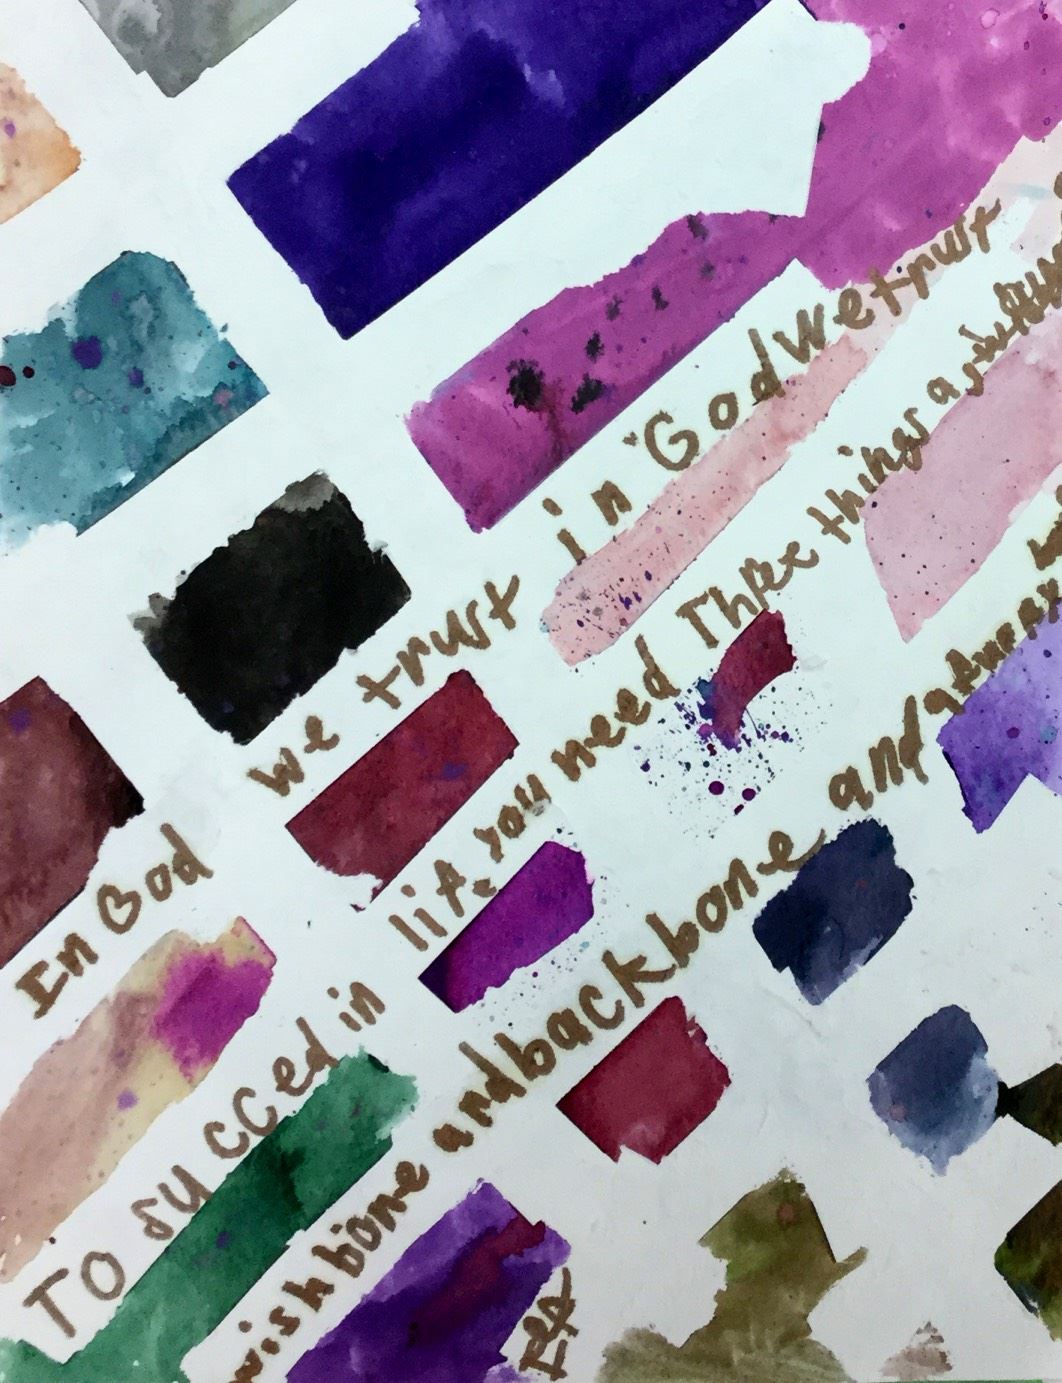 In God we trust in "God we trust
To succed in life you need Three things a
wishbone and backbone and